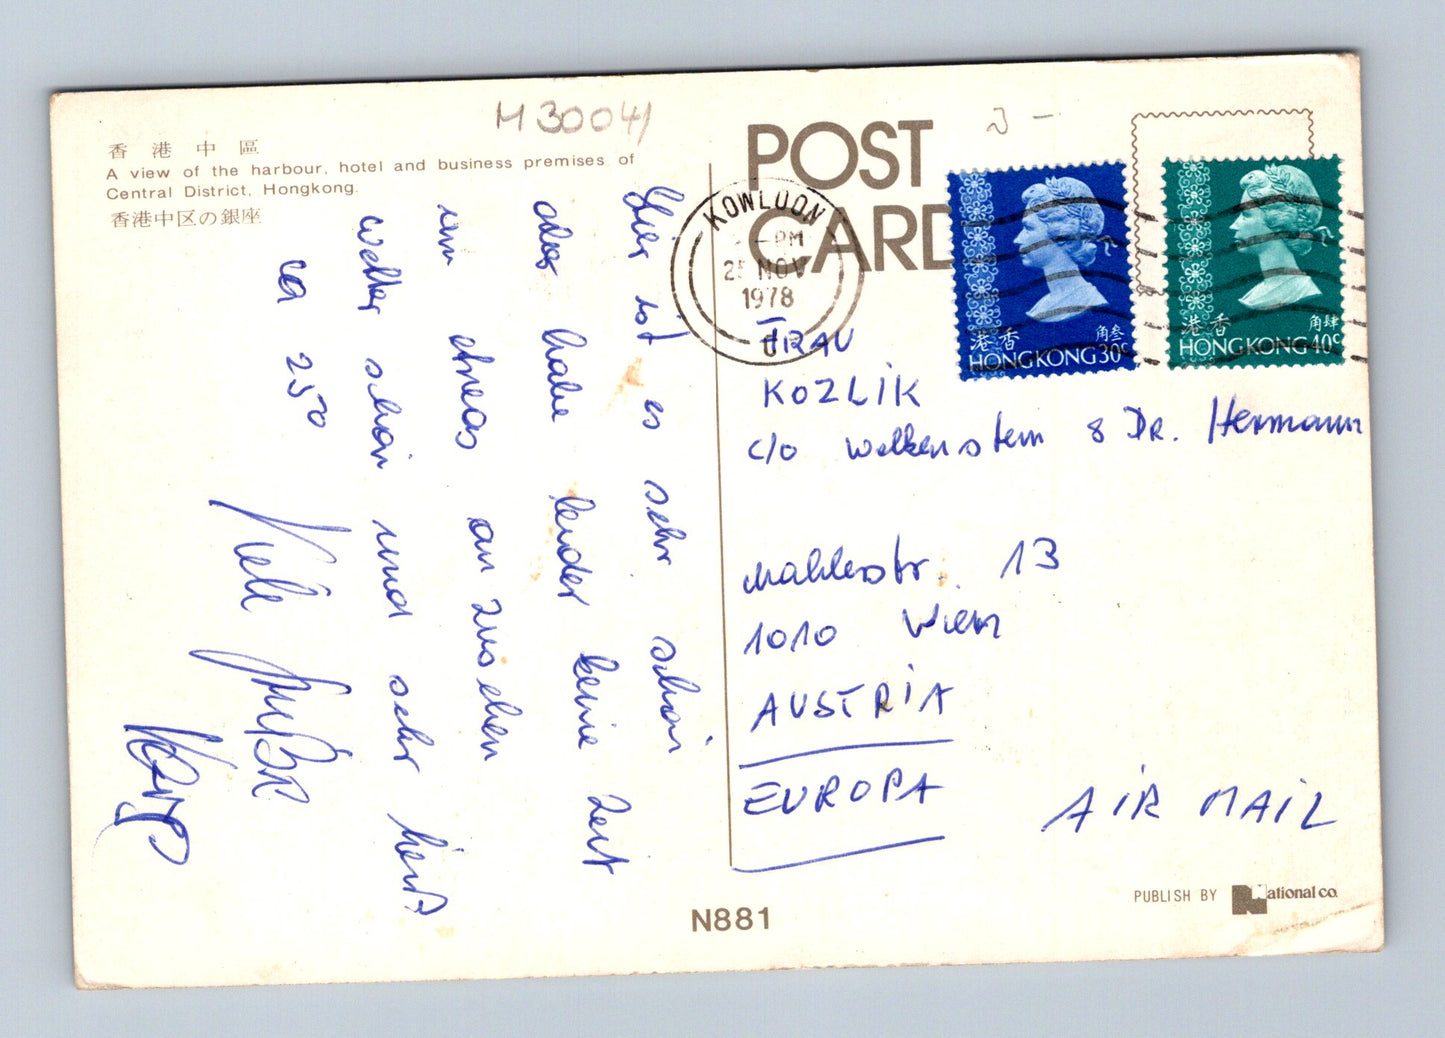 M 3004/
香港中區
A view of the harbour, hotel and business premises of
Central District, Hongkong.
香港中区の銀座
Hier ist es sehr schön
aber habe leider keine Zeit
um etwas an zusehen
Wetter schön und sehr heiß
ca 25°
Viele
POST
CARD
KOWLOON
PM
NOV
1978
香港
角叁
HONG KONG 30c
香港
角肆
HONG KONG 40c
FRAU
KOZLIK
c/o Wolkenstein 8 DR. Hermann
Mahlerstr. 13
1010 Wien
AUSTRIA
EUROPA
AIR MAIL
N881
PUBLISH BY National co.